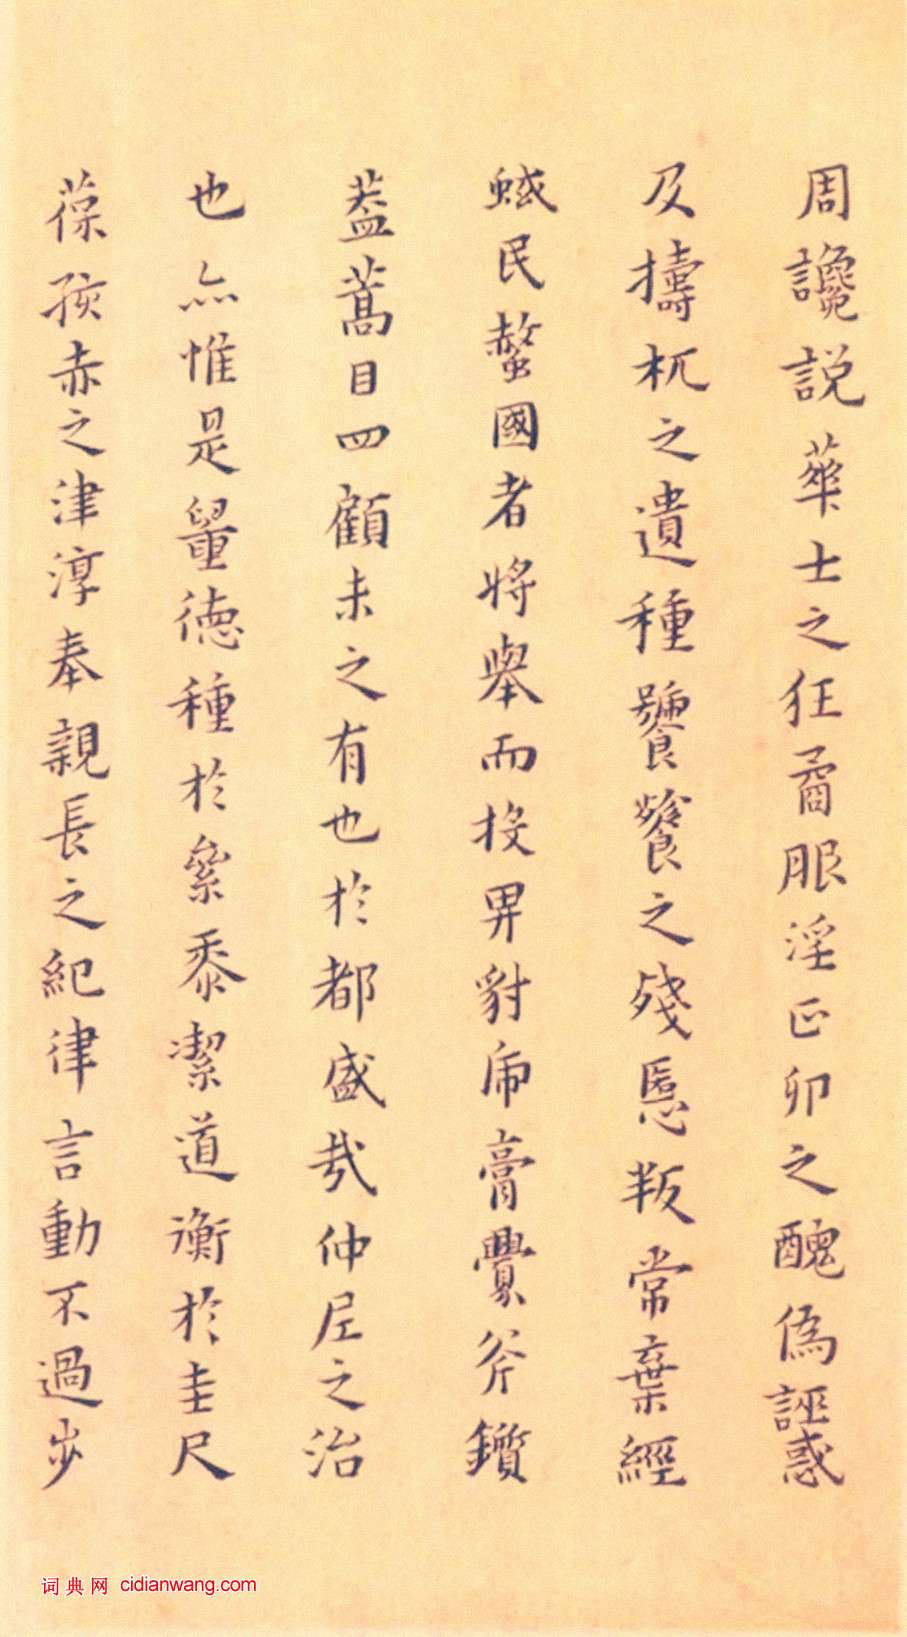 周讒説華士之狂矞服淫正卯之醜偽誣惑
及擣杌之遺種饕餮之殘慝叛常棄經
蜮民螫國者將舉而投畀豺虎膏釁斧鑕
葢蒿目四顧未之有也於都盛哉仲尼之治
也亦惟是量德種於絫黍潔道衡於圭尺
葆孩赤之津淳奉親長之紀律言動不過步
词典网 cidianwang.com